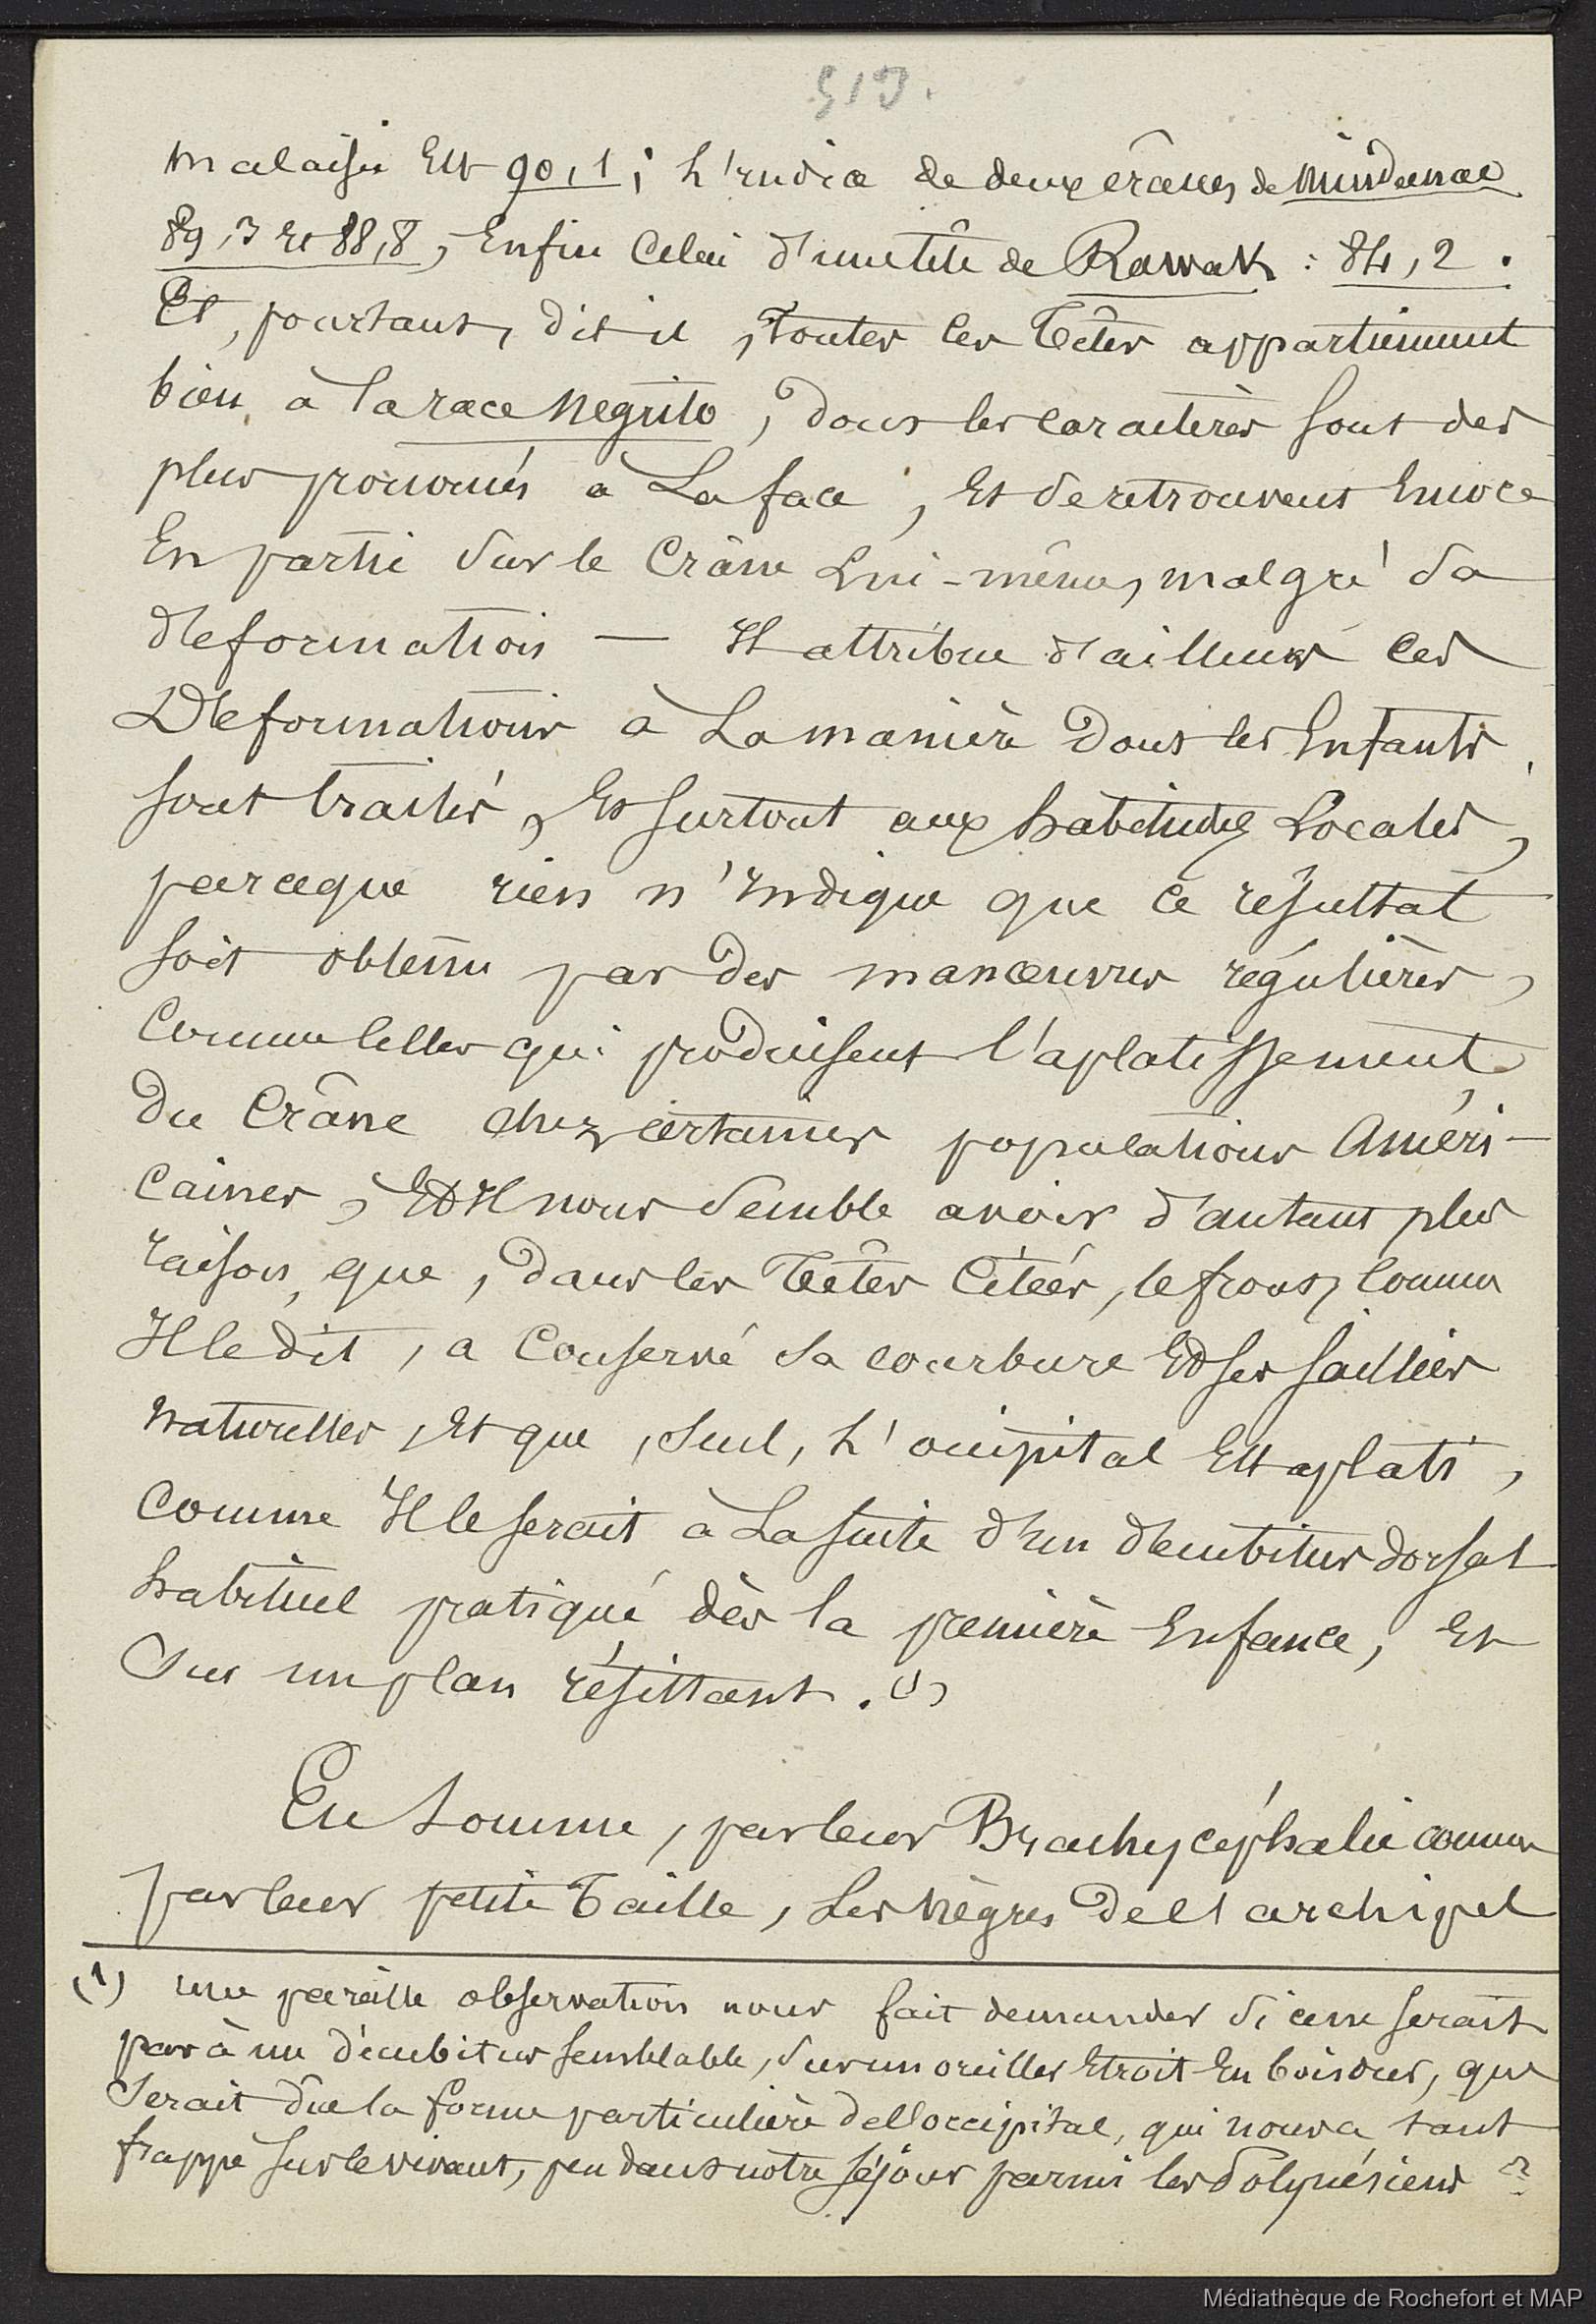 513.
malaisie Est 90,1; L'indice de deux crânes de Mindanao
89,3 et 88,8, Enfin Celui d'une tête de Rawak : 84,2.
Et, pourtant, dit il, toutes les Têtes appartiennent
bien à la race Négrito, dont les caractères sont des
plus prononcés à La face, Et se retrouvent Encore
En partie sur le Crâne Lui-même, malgré sa
déformation — Il attribue d'ailleurs ces
Déformations à La manière dont les Enfants
sont traités, Et surtout aux habitudes Locales,
parceque rien n'Indique que ce résultat
soit obtenu par des manœuvres régulières,
Comme celles qui produisent l'aplatissement
du Crâne chez certaines populations Améri-
caines, Et Il nous semble avoir d'autant plus
raison, que, dans les Têtes Citées, le front, comme
Il le dit, a Conservé sa courbure Et ses saillies
naturelles, Et que, seul, L'occipital Est aplati,
Comme Il le serait à La suite d'un décubitus dorsal
habituel pratiqué dès la première Enfance, Et
sur un plan résistant. (1)
En Somme, par leur Brachycéphalie comme
par leur petite Taille, Les Nègres de l'archipel
(1) une pareille observation nous fait demander si ce ne serait
pas à un décubitus semblable, sur un oreiller Etroit En bois dur, que
serait dûe la forme particulière de l'occipital, qui nous a tant
frappé sur le vivant, pendant notre séjour parmi les Polynésiens ?
Médiathèque de Rochefort et MAP